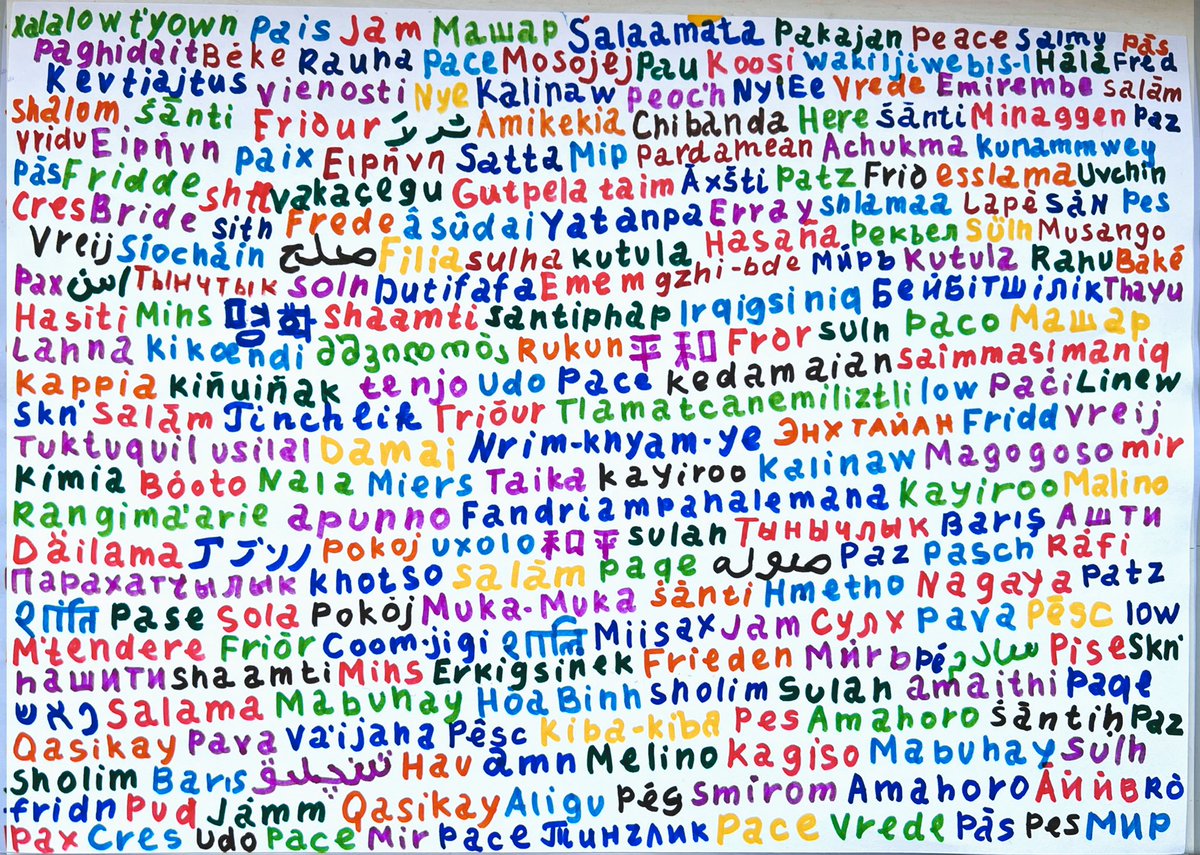 Xalalow t'yown Pais Jam Машар Salaamata Pakajan Peace Salmu pās
Paghidait Béke Rauha Pace Mosojej Pau Koosi wakiljiwebis-I Hálá Fred
Kevtiajtus Vienosti Nye Kalinaw peoc'h NylEe Vrede Emirembe salām
shalom śānti Friður Amikekia Chibanda Here śānti Minaggen Paz
vridu Eipήvn paix Eipήvn Satta Mip Pardamean Achukma kunammwey
pās Fridde vakaçegu Gutpela taim Āxšti Patz Frið esslama Uvchin
Cres Bride sith Frede âsûdai Yatanpa Erray shlamaa Lapè SÀN Pes
Vreij Síocháin صلح Filia sulha kutula Hasana рекъел Süln Musango
Pax اسن Тынчтык soln Dutifafa Emem gzhi-bde миръ Kutula Rahu Baké
Hasiti Mihs 평화 Shaamti santiphap Irqigsiniq Бейбітшілік Thayu
Lahna Kikœndi მშვილობა Rukun 平和 Fror suln paco Машар
kappia Kiñuiñak tenjo udo Pace kedamaian saîmmasimaniq
Skn' Salām Jinchlik Triður Tlamatcanemiliztli low Pači Linew
Tuktuquil usilal Damai Nrim-knyam-ye Энх тайан Fridd vreij
Kimia Bóoto Nala Miers Taika kayiroo kalinaw Magogoso mir
Rangima'arie apunno Fandriampahalemana Kayiroo Malino
Däilama pokoj uxolo 和平 sulah Тынычлык Barış Ашти
Парахатчылык khotso salām paqe صوله Paz pasch Ráfi
शांति Pase Sola Pokój Muka-Muka śānti Hmetho Nagaya Patz
M'tendere Friōr Coom-jigi शान्ति Miisax Jam Сулх Pava Pêsc low
հашити shaamti Mihs Erkigsinek Frieden Миръ Pise Skn'
Salama Mabuhay Hòa Bình sholim Sulah amaithi paqe
Qasikay Pava Va'ijaha Pêsc Kiba-kiba Pes Amahoro śāntih Paz
sholim Barıs Hau âmn Melino kagiso Mabuhay Sulh
fridn Pud Jámm Qasikay Aligu Pég Smirom Amahoro
pax Cres udo Pace Mir pace Тинглик Pace Vrede Pās Pes Мир